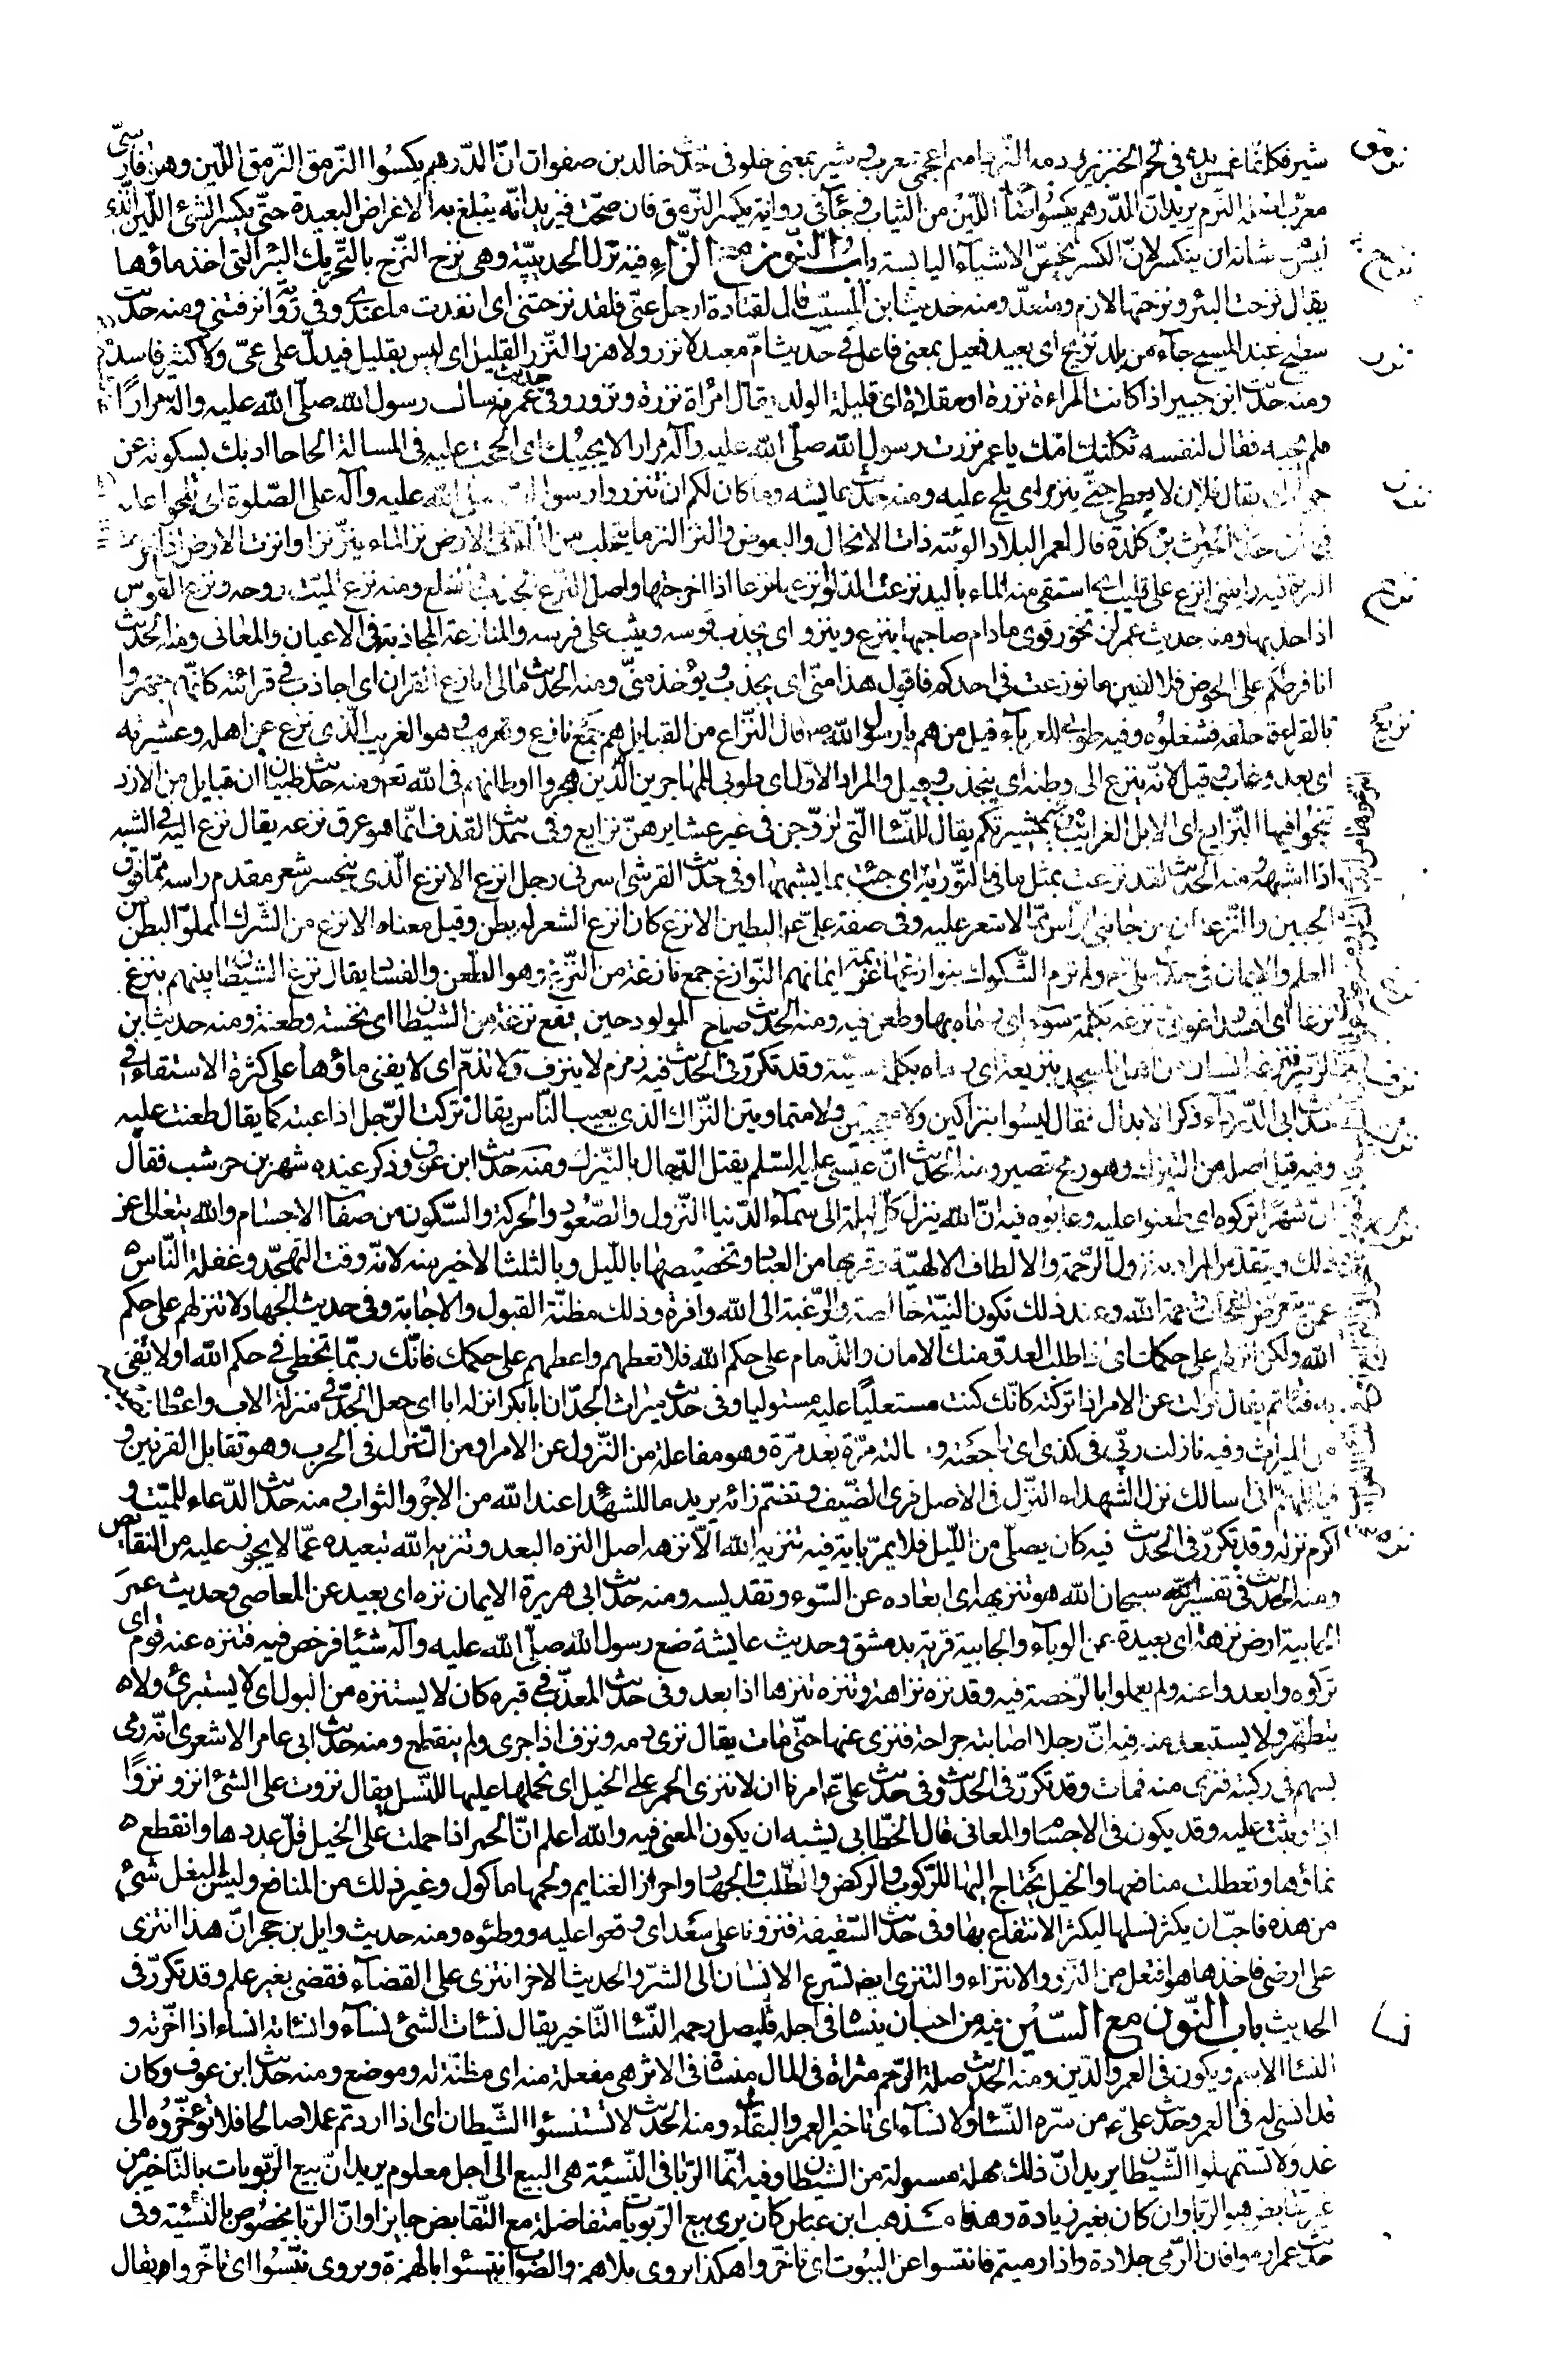 شير فكانما غمس يده في لحم الخنزير ودمه النرد اسم اعجمي معرب وشير بمعنى حلو في حديث خالد بن صفوان ان الدرهم يكسوا النرمق النرمق اللين وهو فارسي
معرب اصله النرم يريد ان الدرهم يكسو صاحبه اللين من الثياب وجاء في رواية يكسر النرمق فان صحت فيريد انه يبلغ به الاغراض البعيدة حتى يكسر الشئ اللين الذي
ليس من شانه ان ينكسر لان الكسر يخص الاشياء اليابسة باب النون مع الزاء فيه نزل الحديبية وهي نزح النزح بالتحريك البئر التي اخذ ماؤها
يقال نزحت البئر ونزحتها لازم ومتعد ومنه حديث ابن المسيب قال لقتادة ارحل عني فلقد نزحتني اى انفدت ما عندي وفي رواية نزفتني ومنه حديث
سطيح عبد المسيح جاء من بلد نزيح اى بعيد فعيل بمعنى فاعل في حديث ام معبد لا نزر ولا هذر النزر القليل اى ليس بقليل فيدل على عي ولا كثير فاسد
ومنه حديث ابن جبير اذا كانت المراءة نزرة او مقلاة اى قليلة الولد يقال امراة نزرة ونزور وفي حديث عمر انه سال رسول الله صلى الله عليه واله مرارا
فلم يجبه فقال لنفسه ثكلتك امك يا عمر نزرت رسول الله صلى الله عليه وآله مرارا لا يجيبك اى الححت عليه في المسالة الحاحا ادبك بسكوته عن
جوابك يقال فلان لا يعطي حتى ينزر اى يلح عليه ومنه حديث عايشه وما كان لكم ان تنزروا رسول الله صلى الله عليه وآله على الصلوة اى تلحوا عليه
فيها في حديث الحارث بن كلدة قال لعمر البلاد الوبئة ذات الانجال والبعوض والنز النز ما يتحلب من الماء في الارض نز الماء ينز نزا وانزت الارض
فيه رايتني انزع على قليب اى استقي منه الماء باليد نزعت الدلو انزعها نزعا اذا اخرجتها واصل النزع الجذب والقلع ومنه نزع الميت روحه ونزع القوس
اذا جذبها ومنه حديث عمر لن تخور قوى مادام صاحبها ينزع وينزو اى يجذب قوسه ويثب على فرسه والمنازعة المجاذبة في الاعيان والمعاني ومنه الحديث
انا فرطكم على الحوض فلا الفين ما نوزعت في احدكم فاقول هذا مني اى يجذب ويؤخذ مني ومنه الحديث مالي انازع القران اى اجاذب في قرائته كانهم جهروا
بالقراءة خلفه فشغلوه وفيه طوبى للغرباء قيل من هم يا رسول الله قال النزاع من القبايل هم جمع نازع ونزيع وهو الغريب الذي نزع عن اهله وعشيرته
اى بعد وغاب وقيل لانه ينزع الى وطنه اى ينجذب ويميل والمراد الاول اى طوبى للمهاجرين الذين هجروا اوطانهم في الله تعالى ومنه حديث ظبيان ان قبايل من الازد
نتجوا فيها النزايع اى الابل الغرايب يقال للنساء التي تزوجن في غير عشايرهن نزايع وفي حديث القذف انما هو عرق نزعه يقال نزع اليه في الشبه
اذا اشبهه ومنه الحديث لقد نزعت بمثل ما في التورية اى جئت بما يشبهها وفي حديث القرشي اسرني رجل انزع الانزع الذي ينحسر شعر مقدم راسه مما فوق
الجبين والنزعتان من جانبي الراس مما لا شعر عليه وفي صفة علي البطين الانزع كان انزع الشعر له بطن وقيل معناه الانزع من الشرك المملو البطن من
العلم والايمان في حديث علي ولم ترم الشكوك بنوازغها عزيمة ايمانهم النوازغ جمع نازغة من النزغ وهو الطعن والفساد يقال نزغ الشيطان بينهم ينزغ
نزغا اى افسد واغرى ونزغه بكلمة سوء اى رماه بها وطعن فيه ومنه الحديث صياح المولود حين يقع نزغة من الشيطان اى نخسة وطعنة ومنه حديث ابن
الزبير فنزغه انسان من اهل المسجد بنزيغة اى رماه بكلمة سيئة وقد تكرر في الحديث فيه زمزم لا ينزف ولا تذم اى لا يفنى ماؤها على كثرة الاستقاء في
حديث ابي الدرداء ذكر الابدال فقال ليسوا بنزاكين ولا معجبين ولا متماوتين النزاك الذي يعيب الناس يقال نزكت الرجل اذا عبته كما يقال طعنت عليه
وفيه قيل اصله من النيزك وهو رمح قصير ومنه الحديث ان عيسى عليه السلم يقتل الدجال بالنيزك ومنه حديث ابن عون وذكر عنده شهر بن حوشب فقال
ان شهرا نزكوه اى طعنوا عليه وعابوه فيه ان الله ينزل كل ليلة الى سماء الدنيا النزول والصعود والحركة والسكون من صفات الاجسام والله يتعالى عن
ذلك ويتقدس والمراد به نزول الرحمة والالطاف الالهية وقربها من العباد وتخصيصها بالليل وبالثلث الاخير منه لانه وقت التهجد وغفلة الناس
عمن يتعرض لنفحات رحمة الله وعند ذلك تكون النية خالصة والرغبة الى الله وافرة وذلك مظنة القبول والاجابة وفي حديث الجهاد لا تنزلهم على حكم
الله ولكن انزلهم على حكمك اى اذا طلب العدو منك الامان والذمام على حكم الله فلا تعطهم واعطهم على حكمك فانك ربما تخطى في حكم الله او لا تفي
به فتاثم يقال نزلت عن الامر اذا تركته كانك كنت مستعليا عليه مستوليا وفي حديث ميراث الجد ان ابا بكر انزله ابا اى جعل الجد في منزلة الاب واعطاه نصيبه
من الميراث وفيه نازلت ربي في كذى اى راجعته وسالته مرة بعد مرة وهو مفاعلة من النزول عن الامر او من النزال في الحرب وهو تقابل القرنين و
فيه اللهم اني اسالك نزل الشهداء النزل في الاصل قرى الضيف وتضم زائه يريد ما للشهداء عند الله من الاجر والثواب ومنه حديث الدعاء للميت و
اكرم نزله وقد تكرر في الحديث فيه كان يصلي من الليل فلا يمر باية فيه تنزيه الله الا نزهه اصل النزه البعد وتنزيه الله تبعيده عما لا يجوز عليه من النقايص
ومنه الحديث في تفسير سبحان الله هو تنزيهه اى ابعاده عن السوء وتقديسه ومنه حديث ابي هريرة الايمان نزه اى بعيد عن المعاصي وحديث عمر
الجابية ارض نزهة اى بعيدة من الوباء والجابية قرية بدمشق وحديث عايشة صنع رسول الله صلى الله عليه وآله شيئا فرخص فيه فتنزه عنه قوم اى
تركوه وابعدوا عنه ولم يعملوا بالرخصة فيه وقد نزه نزاهة وتنزه تنزها اذا بعد وفي حديث المعذب في قبره كان لا يستنزه من البول اى لا يستبرئ ولا
يتطهر ولا يستبعد منه فيه ان رجلا اصابته جراحة فنزى عنها حتى مات يقال نزى دمه ونزف اذا جرى ولم ينقطع ومنه حديث ابي عامر الاشعري انه رمى
بسهم في ركبته فنزى منه فمات وقد تكرر في الحديث وفي حديث علي امرنا ان لا ننزى الحمر على الخيل اى نحملها عليها للنسل يقال نزوت على الشئ انزو نزوا
اذا وثبت عليه وقد يكون في الاجسام والمعاني قال الخطابي يشبه ان يكون المعنى فيه والله اعلم ان الحمر اذا حملت على الخيل قل عددها وانقطع
نماؤها وتعطلت منافعها والخيل يحتاج اليها للركوب والركض والطلب والجهاد واحراز الغنايم ولحمها ماكول وغير ذلك من المنافع وليس للبغل شئ
من هذه فاحب ان يكثر نسلها ليكثر الانتفاع بها وفي حديث السقيفة فنزونا على سعد اى وقعوا عليه ووطئوه ومنه حديث وايل بن حجر ان هذا انتزى
على ارضي فاخذها هو افتعل من النزو والانتزاء والتنزى ايضا تسرع الانسان الى الشر والحديث الاخر انتزى على القضاء فقضى بغير علم وقد تكرر في
الحديث باب النون مع السين فيه من احب ان ينسا في اجله فليصل رحمه النسا التاخير يقال نسات الشئ نساء وانساته انساء اذا اخرته و
النسا الاسم ويكون في العمر والدين ومنه الحديث صلة الرحم مثراة في المال منساة في الاثر هي مفعلة منه اى مظنة له وموضع ومنه حديث ابن عوف وكان
قد انسئ له في العمر وحديث علي من سره النسا ولا نساء اى تاخير العمر والبقاء ومنه الحديث لا تستنسئوا الشيطان اى اذا اردتم عملا صالحا فلا تؤخروه الى
غد ولا تستمهلوا الشيطان يريد ان ذلك مهلة مسولة من الشيطان وفيه انما الربا في النسيئة هي البيع الى اجل معلوم يريد ان بيع الربويات بالتاخير من
غير تقابض هو الربا وان كان بغير زيادة وهذا مذهب ابن عباس كان يرى بيع الربويات متفاضلة مع التقابض جايزا وان الربا مخصوص بالنسئية وفي
حديث عمر ارموا فان الرمي جلادة واذا رميتم فانتسوا عن البيوت اى تاخروا هكذا يروى بلا همز والصواب انتسئوا بالهمزة ويروى بنسوا اى تاخروا يقال
نرمق
نزح
نزر
نزز
نزع
نزيع
نزغ
نزف
نزك
نزل
نزه
نسا